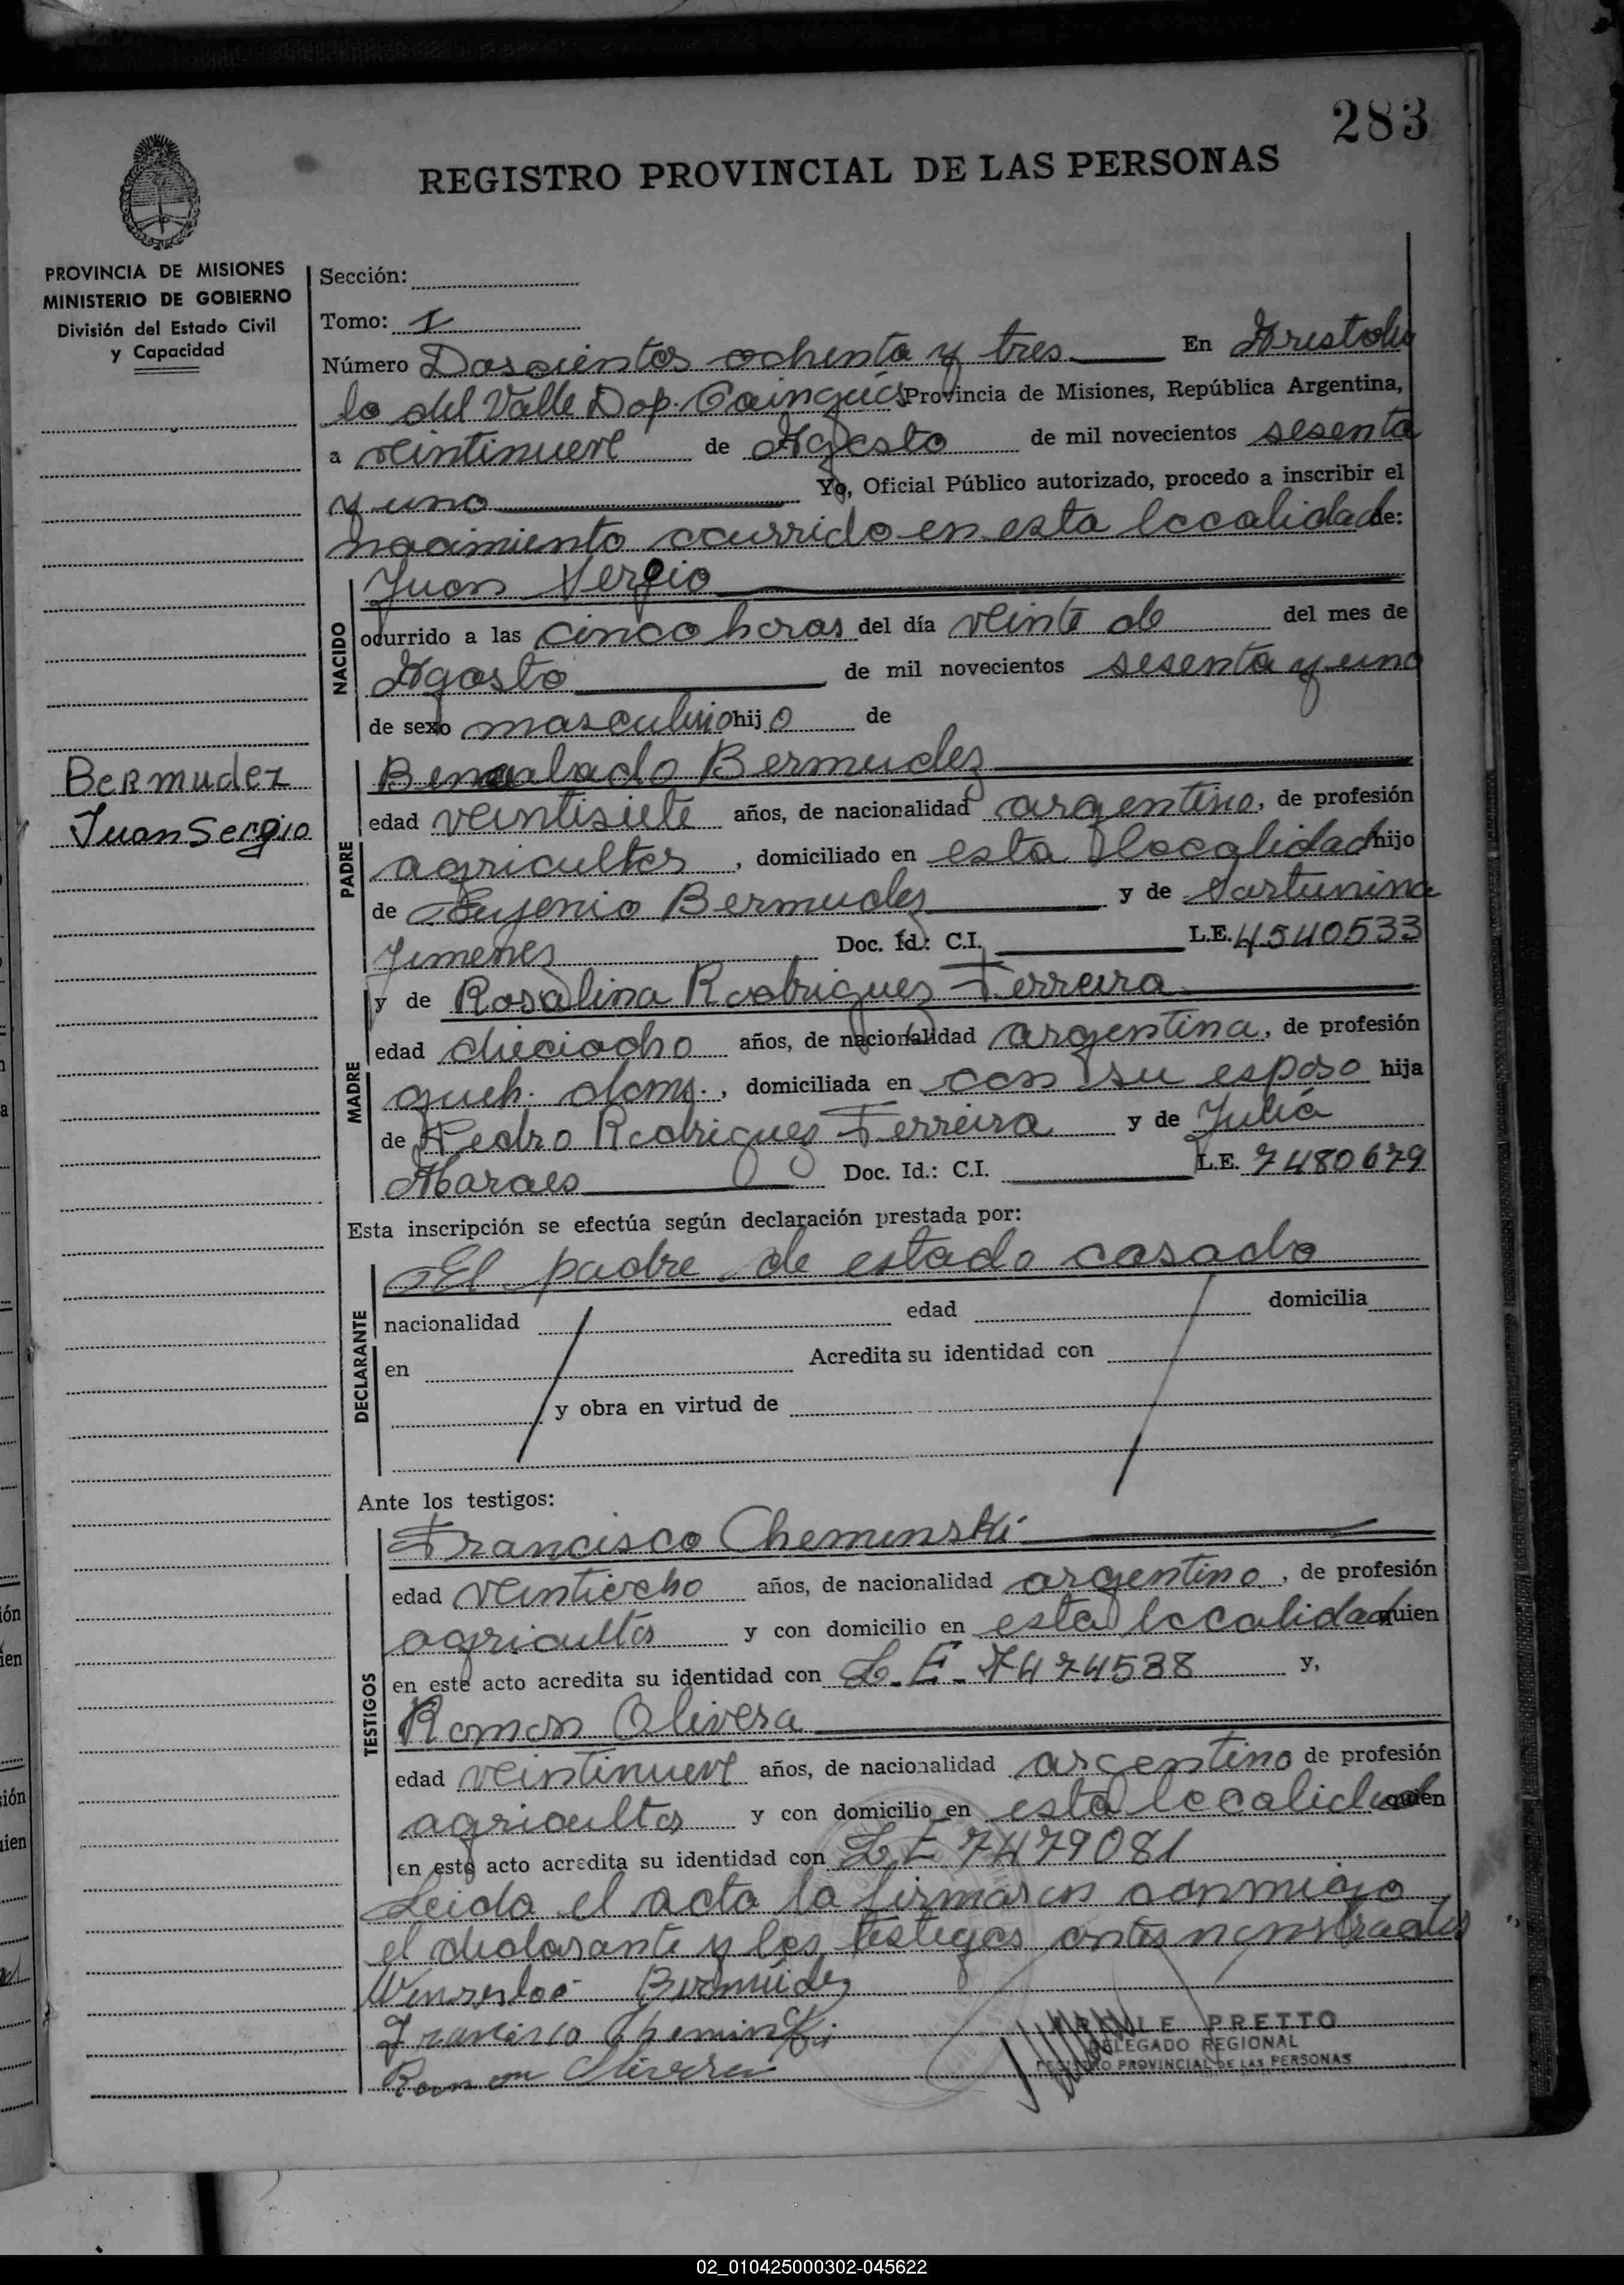 283
REGISTRO PROVINCIAL DE LAS PERSONAS
PROVINCIA DE MISIONES
MINISTERIO DE GOBIERNO
División del Estado Civil
y Capacidad
Sección:
Tomo: I
Número Doscientos ochenta y tres En Aristobu
lo del Valle Dep. Cainguás Provincia de Misiones, República Argentina,
a veintinueve de Agosto de mil novecientos sesenta
y uno Yo, Oficial Público autorizado, procedo a inscribir el
nacimiento ocurrido en esta localidad de:
NACIDO
Juan Sergio
ocurrido a las cinco horas del día veinte de del mes de
Agosto de mil novecientos sesenta y uno
de sexo masculino hijo de
Bermudez
Juan Sergio
PADRE
Bermudez
edad veintisiete años, de nacionalidad argentino, de profesión
agricultor, domiciliado en esta localidad hijo
de Eugenio Bermudez y de Sarturnina
Jimenez Doc. Id.: C.I. L.E. 4540533
MADRE
y de Rosalina Rodriguez Ferreira
edad dieciocho años, de nacionalidad argentina, de profesión
queh. dom., domiciliada en con su esposo hija
de Pedro Rodriguez Ferreira y de Julia
Maraes Doc. Id.: C.I. L.E. 7480679
Esta inscripción se efectúa según declaración prestada por:
DECLARANTE
El padre de estado casado
nacionalidad edad domicilia
en Acredita su identidad con
y obra en virtud de
Ante los testigos:
TESTIGOS
Francisco Cheminski
edad veintiocho años, de nacionalidad argentino, de profesión
agricultor y con domicilio en esta localidad quien
en este acto acredita su identidad con L.E. 7474538 y,
Ramon Olivera
edad veintinueve años, de nacionalidad argentino de profesión
agricultor y con domicilio en esta localidad quien
en este acto acredita su identidad con L.E 7479081
Leida el acta la firmaron conmigo
el declarante y los testigos antes nombrados
Wenseslao Bermúdez
Francisco Cheminski
Ramon Olivera
PRETTO
DELEGADO REGIONAL
REGISTRO PROVINCIAL DE LAS PERSONAS
02_010425000302-045622